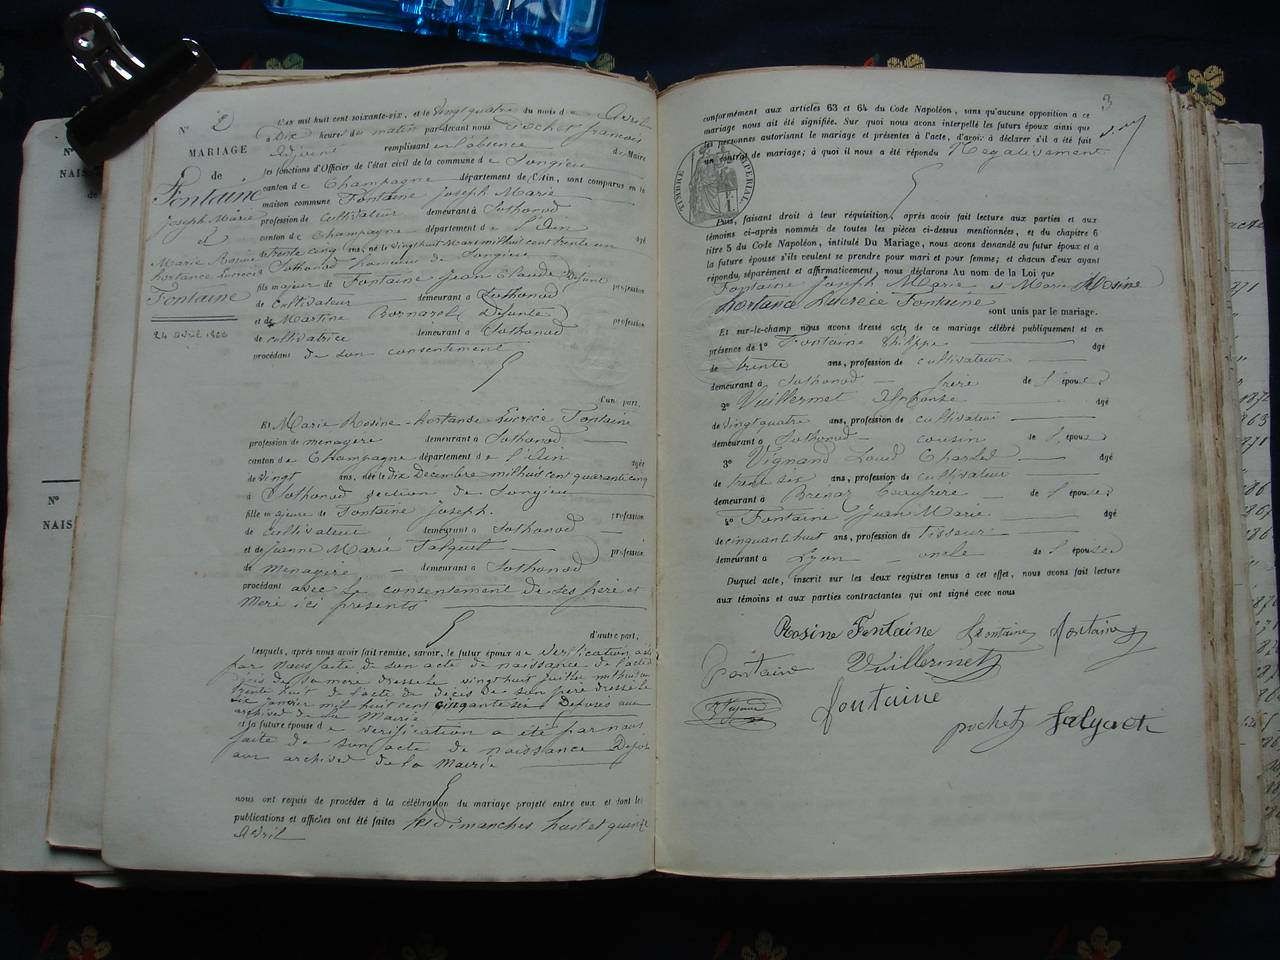 N° 2
MARIAGE
de
Fontaine
Joseph Marie
et
Marie Rosine
hortance Lucrece
Fontaine
24 avril 1866
L'an mil huit cent soixante-six, et le vingt quatre du mois de Avril
à Dix heures du matin par-devant nous Pochet françois
Adjoint remplissant en l'absence du Maire
les fonctions d'Officier de l'état civil de la commune de Songieu
canton de Champagne département de l'Ain, sont comparus en la
maison commune Fontaine Joseph Marie
profession de cultivateur demeurant à Sothonod
canton de Champagne département de l'Ain âgé
de trente cinq ans, né le vingt huit Mars mil huit cent trente un
à Sothonod hameau de Songieu
fils majeur de Fontaine Jean Claude Défunt profession
de Cultivateur demeurant à Sothonod
et de Martine Bornarel Défunte profession
de cultivatrice demeurant à Sothonod
procédant de son consentement
d'une part.
Et Marie Rosine hortande Lucrèce Fontaine
profession de menagere demeurant à Sothonod
canton de Champagne département de l'Ain
de vingt ans, née le Dix Décembre mil huit cent quarante cinq âgée
à Sothonod section de Songieu
fille majeure de Fontaine Joseph. profession
de cultivateur demeurant à Sothonod
et de Jeanne Marie Falquet profession
de menagère demeurant à Sothonod
procédant avec le consentement de ses père et
mere ici présents
d'autre part,
Lesquels, après nous avoir fait remise, savoir, le futur époux de vérification a été
par nous faite de son acte de naissance de l'acte de
décès de sa mere dressé le vingt huit Juillet mil huit cent
trente huit de l'acte de décès de son père dressé le
six janvier mil huit cent cinquante six Déposés aux
archives de la Mairie
et la future épouse de vérification a été par nous
faite de son acte de naissance Déposé
aux archives de la Mairie
nous ont requis de procéder à la célébration du mariage projeté entre eux et dont les
publications et affiches ont été faites les Dimanches huit et quinze
Avril
3
conformément aux articles 63 et 64 du Code Napoléon, sans qu'aucune opposition à ce
mariage nous ait été signifiée. Sur quoi nous avons interpellé les futurs époux ainsi que
les personnes autorisant le mariage et présentes à l'acte, d'avoir à déclarer s'il a été fait
un contrat de mariage; à quoi il nous a été répondu Négativement
TIMBRE IMPERIAL
Puis, faisant droit à leur réquisition, après avoir fait lecture aux parties et aux
témoins ci-après nommés de toutes les pièces ci-dessus mentionnées, et du chapitre 6
titre 5 du Code Napoléon, intitulé Du Mariage, nous avons demandé au futur époux et à
la future épouse s'ils veulent se prendre pour mari et pour femme; et chacun d'eux ayant
répondu séparément et affirmativement, nous déclarons Au nom de la Loi que
Fontaine Joseph Marie et Marie Rosine
hortance Lucrèce Fontaine
sont unis par le mariage.
Et sur-le-champ nous avons dressé acte de ce mariage célébré publiquement et en
présence de 1° Fontaine Philippe âgé
de trente ans, profession de cultivateur
demeurant à Sothonod frère de l'épouse
2° Vuillermet Alphonse âgé
de vingt quatre ans, profession de cultivateur
demeurant à Sothonod cousin de l'époux
3° Vignand Louis Charles âgé
de trente six ans, profession de cultivateur
demeurant à Brénaz Beaufrere de l'époux
4° Fontaine Jean Marie âgé
de cinquante huit ans, profession de Tisseur
demeurant à Lyon oncle de l'épouse
Duquel acte, inscrit sur les deux registres tenus à cet effet, nous avons fait lecture
aux témoins et aux parties contractantes qui ont signé avec nous
Rosine Fontaine fontaine fontaine
fontaine Vuillermet
fontaine
pochet falquet